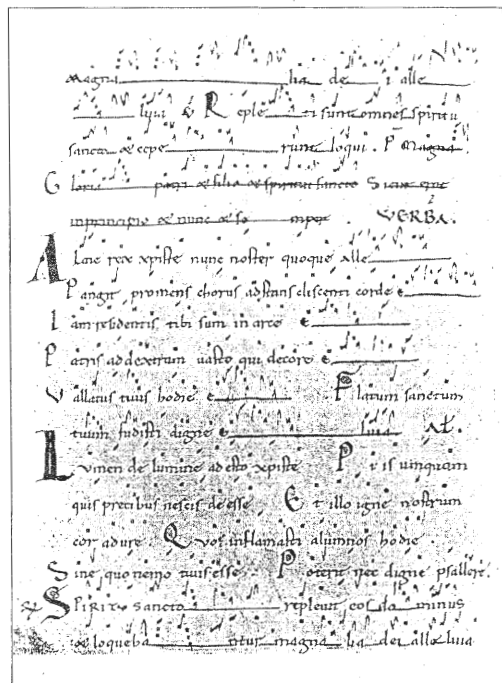 magna lia de i alle
luia V Reple ti sunt omnes spiritu
sancto & cepe runt loqui. P Magna.
Gloria patri & filio & spiritui sancto Sicut erat
inprincipio & nunc & se mper. VERBA.
Alme rex xpiste nunc noster quoque alle
Pangit promens chorus adstans discenti corde e
Iam residentis tibi sum in arce e
Patris ad dextrum uasto qui decore e
Vallatus tuis hodie e Flatum sanctum
tuum fudisti digne e luia
Lumen de lumine adesto xpiste P is unquam
quis precibus nescis de esse Et illo igne nostrum
cor adure. Quos inflamasti alumnos hodie
Sine quo nemo tuis esse Poterit nec digne psallere.
Spiritu sancto repleuit eos do minus
& loqueba ntur magna lia dei alle luia